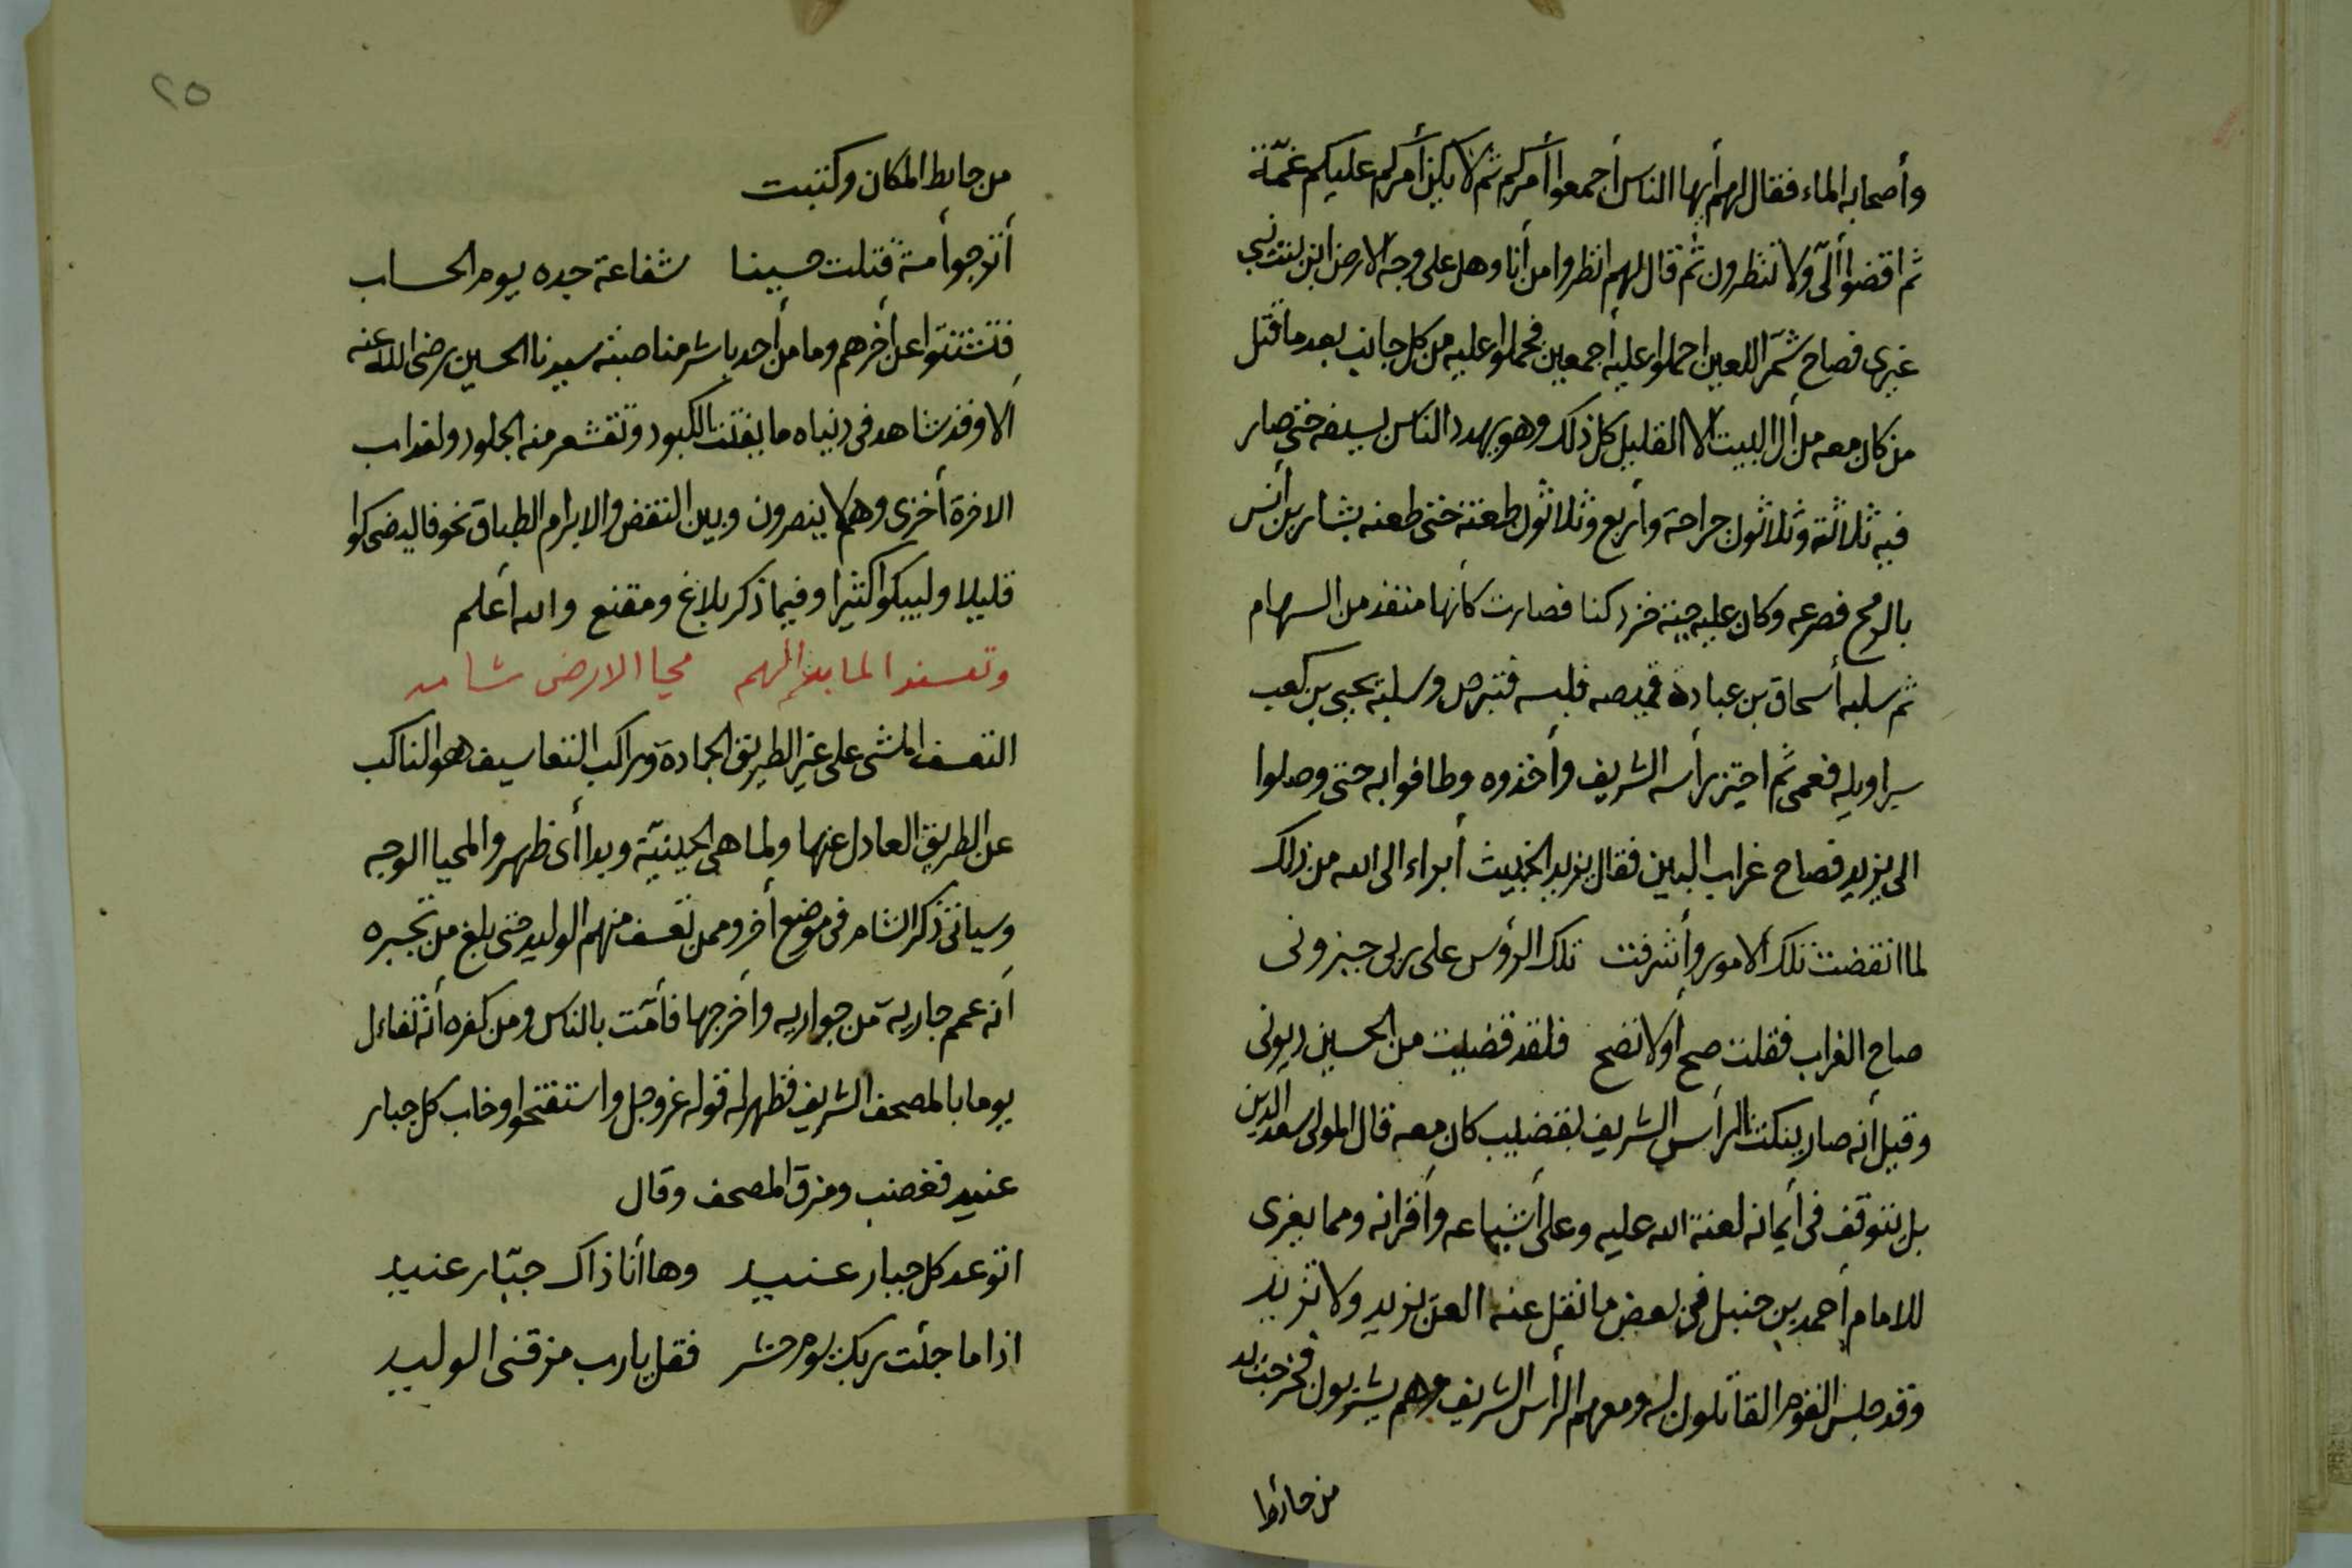 وأصحابه الماء فقال لهم أيها الناس أجمعوا أمركم ثم لا يكن أمركم عليكم غمّة
ثم اقضوا ألىّ ولا تنظرون ثم قال لهم انظروا من أنا وهل على وجه الارض ابن بنت نبي
غيرى فصاح شمر اللعين احملوا عليه أجمعين فحملوا عليه من كل جانب بعد ما قتل
من كان معه من أل البيت الا القليل كل ذلك وهو يهدد الناس بسيفه حتى صار
فيه ثلاثة وثلاثون جراحة وأربع وثلاثون طعنة حتى طعنه بشار بن أنس
بالرمح فصرعه وكان عليه جبة خز دكنا فصارت كأنها منقذ من السهام
ثم سلبه أسحاق بن عبادة قميصه فلبسه فتبرص وسلبه يحيى بن كعب
سراويله فعمى ثم احتز رأسه الشريف وأخذوه وطافوا به حتى وصلوا
الى يزيد فصاح غراب البين فقال يزيد الخبيث أبراء الى الله من ذلك
لما انقضت تلك الامور وأشرفت تلك الرؤس على ربى جيزونى
صاح الغراب فقلت صح أولا تصح فلقد قضيت من الحسين ديونى
وقيل أنه صار ينكت الرأس الشريف بقضيب كان معه قال المولى سعد الدين
بل نتوقف فى أيمانه لعنة الله عليه وعلى أشياعه وأقرانه ومما يعزى
للامام أحمد بن حنبل فى بعض ما نقل عنه العن يزيد ولا تزيد
وقد جلس القوم القاتلون له ومعهم الرأس الشريف وهم يشربون فخرجت يد
من حائط
٢٥
من حايط المكان وكتبت
أترجوا أمة قتلت حسينا شفاعة جده يوم الحساب
فتشتتوا عن أخرهم وما من أحد باشر مناصبة سيدنا الحسين رضى الله عنه
الا وقد شاهد فى دنياه ما يفتت الكبود وتقشعر منه الجلود ولعذاب
الاخرة أخزى وهم لا ينصرون وبين النقض والابرام الطباق نحو فاليضحكوا
قليلا وليبكوا كثيرا وفيما ذكر بلاغ ومقنع والله أعلم
وتعسفوا لما بدا لهم محيا الارض شام
التعسف المشى على غير الطريق الجادة وراكب التعاسيف هو الناكب
عن الطريق العادل عنها ولما هى الحينيّة وبدا أى ظهر والمحيا الوجه
وسياتى ذكر الشام فى موضع أخر وممن تعسف منهم الوليد حتى بلغ من تجبره
أنه عمم جارية من جواريه وأخرجها فأمّت بالناس ومن كفره أنه تفاءل
يوما بالمصحف الشريف فظهر له قوله عز وجل واستفتحوا وخاب كل جبار
عنيد فغضب ومزق المصحف وقال
اتوعد كل جبار عنيد وها أنا ذاك جبّار عنيد
اذا ما جئت ربك يوم حشر فقل يارب مزقنى الوليد